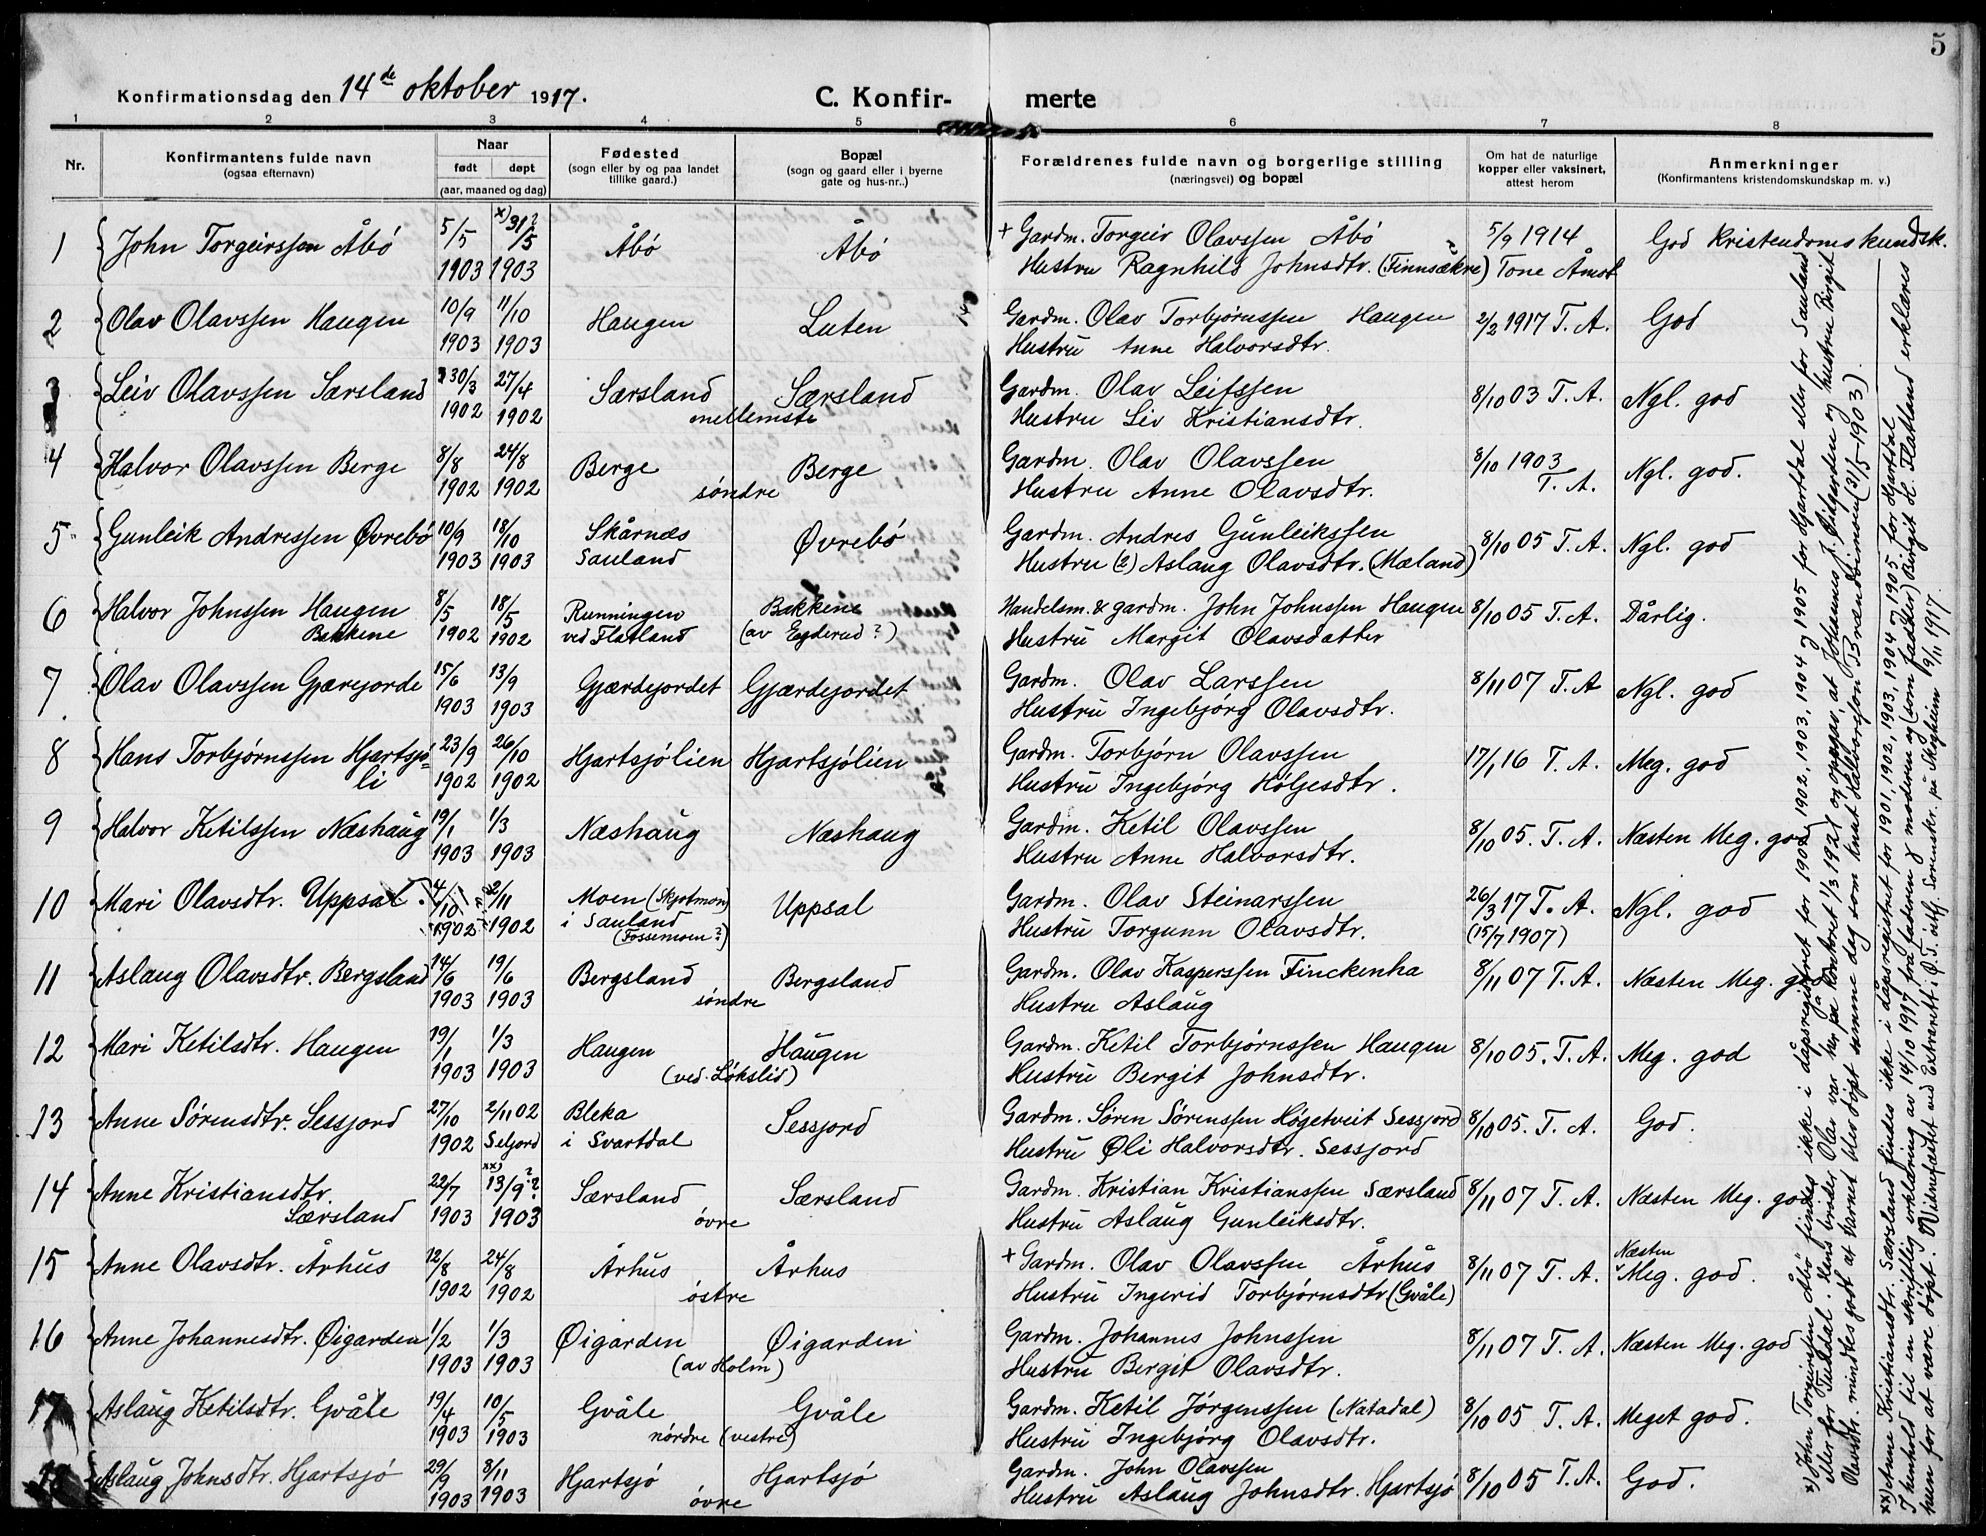 5
Konfirmationsdag den 14de oktober 1917.
C. Konfir- merte
1 2 3 4 5 6 7 8
Nr.
Konfirmantens fulde navn
(ogsaa efternavn)
Naar
født døpt
(aar, maaned og dag)
Fødested
(sogn eller by og paa landet
tillike gaard.)
Bopæl
(sogn og gaard eller i byerne
gate og hus-nr..)
Forældrenes fulde navn og borgerlige stilling
(næringsvei) og bopæl
Om hat de naturlige
kopper eller vaksinert,
attest herom
Anmerkninger
(Konfirmantens kristendomskundskap m. v.)
1 John Torgeirssen Åbó 5/5 1903 x) 31/5? 1903 Åbó Åbó + Gardm. Torgeir Olavssen Åbó 5/9 1914 God Kristendomskundsk.
Hustru Ragnhild Johnsdtr. (Finnsækre) Tone Åmot
2 Olav Olavssen Haugen 10/9 1903 11/10 1903 Haugen Luten Gardm. Olav Torbjørnssen Haugen 2/2 1917 T. A. God
Hustru Anne Halvorsdtr.
3 Leiv Olavssen Særsland 30/3 1902 27/4 1902 Særsland Særsland Gardm. Olav Leifssen 8/10 03 T. A. Ngl. god
mellemste Hustru Liv Kristiansdtr.
4 Halvor Olavssen Berge 8/8 1902 24/8 1902 Berge Berge Gardm. Olav Olavssen 8/10 1903 Ngl. god.
søndre Hustru Anne Olavsdtr. T. A.
5 Gunleik Andressen Øvrebó 10/9 1903 18/10 1903 Skårnæs Øvrebó Gardm. Andres Gunleikssen 8/10 05 T. A. Ngl. god
Sauland Hustru (2) Aslaug Olavsdtr. (Mæland)
6 Halvor Johnssen Haugen 8/5 1902 18/5 1902 Runningen Bakkene Handelsm. & gardm. John Johnssen Haugen 8/10 05 T. A. Dårlig.
Bakkene ved Flatland (av Eyderud?) Hustru Margit Olavsdatter
7 Olav Olavssen Gjærejorde 15/6 1903 13/9 1903 Gjærdejordet Gjærdejordet Gardm. Olav Larssen 8/11 07 T. A Ngl. god
Hustru Ingebjørg Olavsdtr.
8 Hans Torbjørnssen Hjartsjó= 23/9 1902 26/10 1902 Hjartsjólien Hjartsjólien Gardm. Torbjørn Olavssen 17/1 16 T. A. Meg. god
li Hustru Ingebjørg Hølgesdtr.
9 Halvor Ketilssen Næshaug 19/1 1903 1/3 1903 Næshaug Næshaug Gardm. Ketil Olavssen 8/10 05. T. A. Næsten Meg. god
Hustru Anne Halvorsdtr.
10 Mari Olavsdtr. Uppsal. 4/10 1902 2/11 1902 Moen (Skjotmon) Uppsal Gardm. Olav Steinarssen 26/3 17 T. A. Ngl. god
i Sauland (Fossemoen?) Hustru Torgunn Olavsdtr. (15/7 1907)
11 Aslaug Olavsdtr. Bergsland 14/6 1903 19/6 1903 Bergsland Bergsland Gardm. Olav Kasperssen Finckenha 8/11 07 T. A. Næsten Meg. god
søndre Hustru Aslaug
12 Mari Ketilsdtr. Haugen 19/1 1903 1/3 1903 Haugen Haugen Gardm. Ketil Torbjørnssen Haugen 8/10 05. T. A. Meg. god
(ved Løkslid) Hustru Bergit Johnsdtr.
13 Anne Sørensdtr. Sessjord 27/10 1902 2/11 02 Seljord Bleka Sessjord Gardm. Søren Sørenssen Høgetveit Sessjord 8/10 05. T. A. God.
i Svartdal Hustru Øli Halvorsdtr. Sessjord
14 Anne Kristiansdtr. 22/7 1903 xx) 13/9? 1903 Særsland Særsland Gardm. Kristian Kristianssen Særsland 8/11 07 T. A. Næsten Meg. god
Særsland øvre Hustru Aslaug Gunleiksdtr.
15 Anne Olavsdtr. Århus 12/8 1902 24/8 1902 Århus Århus + Gardm. Olav Olavssen Århus 8/11 07 T. A. Næsten Meg. god.
østre Hustru Ingerid Torbjørnsdtr (Gvåle)
16 Anne Johannesdtr. Øigarden 1/2 1903 1/3 1903 Øigarden Øigarden Gardm. Johannes Johnssen 8/11 07 T. A. Næsten Meg. god
(av Holm) Hustru Bergit Olavsdtr.
17 Aslaug Ketilsdtr. Gvåle 19/4 1903 10/5 1903 Gvåle Gvåle Gardm. Ketil Jørgenssen (Natadal) 8/10 05 T. A. Meget god.
nørdre (vestre) Hustru Ingebjørg Olavsdtr.
18 Aslaug Johnsdtr. Hjartsjó 29/9 1903 8/11 1903 Hjartsjó Hjartsjó Gardm. John Olavssen 8/10 05 T. A. God.
øvre Hustru Aslaug Johnsdtr. Hjartsjó
x) John Torgeirssen Åbó findes ikke i dåpsregistret for 1902, 1903, 1904 og 1905 for Hjartdal eller for Sauland
eller for Tuddal. Hans broder Olav var her på kontret 1/3 1921 og oppga, at Johannes J. Øigarden og hustru Birgit
Olavsdtr. mindtes godt at barnet blev døpt samme dag som Knut Halvorsson Brændsimoen (31/5-1903).
xx) Anne Kristiansdtr. Særsland findes ikke i dåpsregistret for 1901, 1902, 1903, 1904 og 1905 for Hjartdal.
I henhold til en skriftlig erklæring av 14/10 1917 fra faderen & moderen og (som fadder) Birgit H. Flatland erklæres
hun for at være døpt. Vidnefæstet ved Extrarett i Ø. T. itsf. Sorenskr. på Skogheim 9/11 1917.